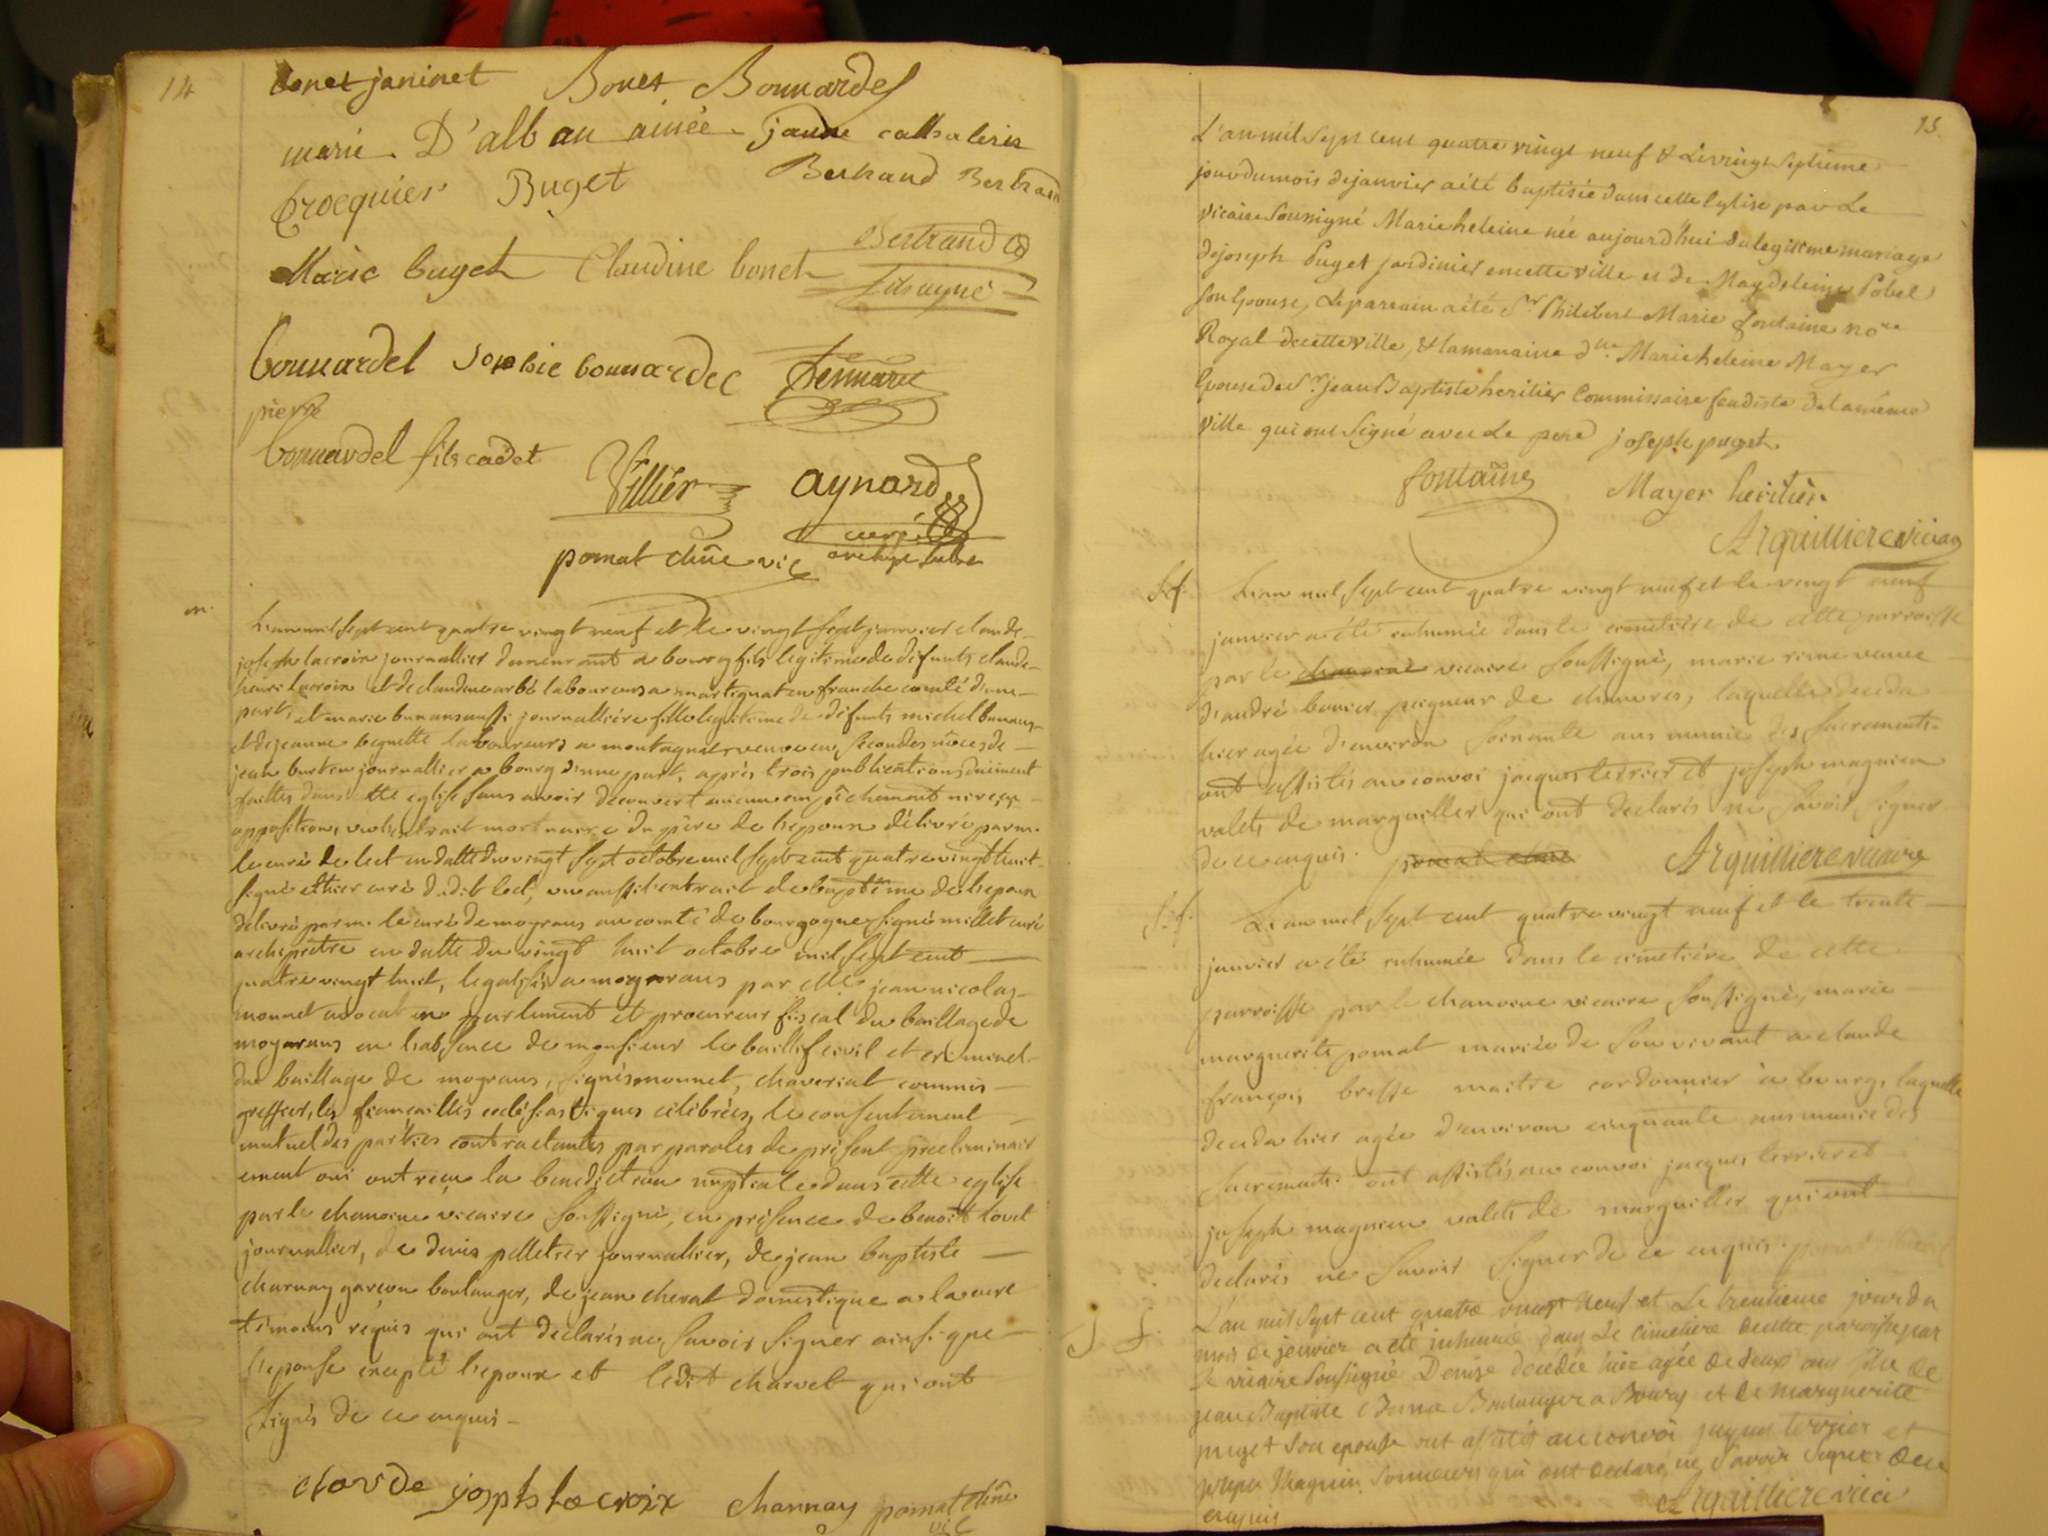 14
bonet janinet Bonet Bonnardel
marie D'alban ainée
Bertrand Bertrand
Buget
Marie buget Claudine bonet Bertrand
bonnardel sophie bonnardel
pierre
bonnardel fils cadet
Villier aynard
curé
pomat chne vic archiprêtre
m.
L'an mil sept cent quatre vingt neuf et le vingt sept janvier claude
joseph lacroix journallier demeurant a bourg fils legitime de défunts claude
henri lacroix et de claudine arbé laboureurs a martignat en franche comté d'une
part, et marie aussi journalliere fille legitime de défunts michel
et de jeanne laboureurs a montagna veuve en secondes nôces de
jean journallier a bourg d'une part, après trois publications duement
faittes dans cette eglise sans avoir decouvert aucun empêchement ni reçu
opposition, vu l'extrait mortuaire du père de l'epoux délivré par m.
le curé de lect en datte du vingt sept octobre mil sept cent quatre vingt huit
signé curé dudit lect, vu aussi l'extrait de baptême de l'epoux
délivré par m. le curé de moyrans au comté de bourgogne signé millet curé
archiprêtre en datte du vingt huit octobre mil sept cent
quatre vingt huit, legalisés a moyrans par Me jean nicolas
monnet avocat en parlement et procureur fiscal du baillage de
moyrans en l'absence de monsieur le baillif civil et criminel
du baillage de moyrans, signés monnet, chaveriat commis
greffier, les fiançailles ecclésiastiques célébrées, le consentement
mutuel des parties contractantes par paroles de présent préeliminair
ement oui ont reçu la benediction nuptiale dans cette eglise
par le chanoine vicaire soussigné, en présence de benoit
journallier, de denis pelletier journallier, de jean baptiste
charnay garçon boulanger, de jean cherat domestique a la cure
témoins requis qui ont declarés ne savoir signer ainsi que
l'epouse excepté l'epoux et ledit charvet qui ont
signés de ce enquis
claude joseph lacroix charnay pomat chne
vic
15
L'an mil sept cent quatre vingt neuf & le vingt septieme
jour du mois de janvier a été baptisée dans cette Eglise par Le
vicaire soussigné Marie heleine née aujourd'hui du legitime mariage
de joseph Puget jardinier en cette ville et de Magdeleine Pobel
son Epouse, Le parrain a été Sr Philibert Marie fontaine nore
Royal de cette ville, & la marraine dlle Marie heleine Mayer
Epouse de Sr jean Baptiste heritier Commissaire feudiste de la même
ville qui ont signé avec Le pere joseph puget
fontaine Mayer heritier
Arquilliere vicaire
S.f. L'an mil sept cent quatre vingt neuf et le vingt neuf
janvier a été enhumée dans le cimetière de cette parroisse
par le chanoine vicaire soussigné, marie rime veuve
d'andré bonier peigneur de chanvres, laquelle deceda
hier agée d'environ soixante ans munie des sacrements
ont assistés au convoi jacques terrier et joseph magnien
valets de marguiller qui ont declarés ne savoir signer
de ce enquis. pomat chne Arquilliere vicaire
S.f. L'an mil sept cent quatre vingt neuf et le trente
janvier a été enhumée dans le cimetière de cette
parroisse par le chanoine vicaire soussigné, marie
marguerite pomat mariée de son vivant a claude
françois bresse maitre cordonnier a bourg, laquelle
deceda hier agée d'environ cinquante ans munie des
sacrements. ont assistés au convoi jacques terrier et
joseph magnien valets de marguiller qui ont
declarés ne savoir signer de ce enquis.
S f. L'an mil sept cent quatre vingt neuf et Le trentieme jour du
mois de janvier a été inhumée dans Le cimetiere de cette paroisse par
Le vicaire soussigné Denise decedée hier agée de deux ans fille de
jean Baptiste Boulanger a Bourg et de marguerite
puget son epouse ont assisté au convoi jaques terrier et
joseph Magnien sonneurs qui ont declaré ne savoir signer de ce
enquis Arquilliere vicai